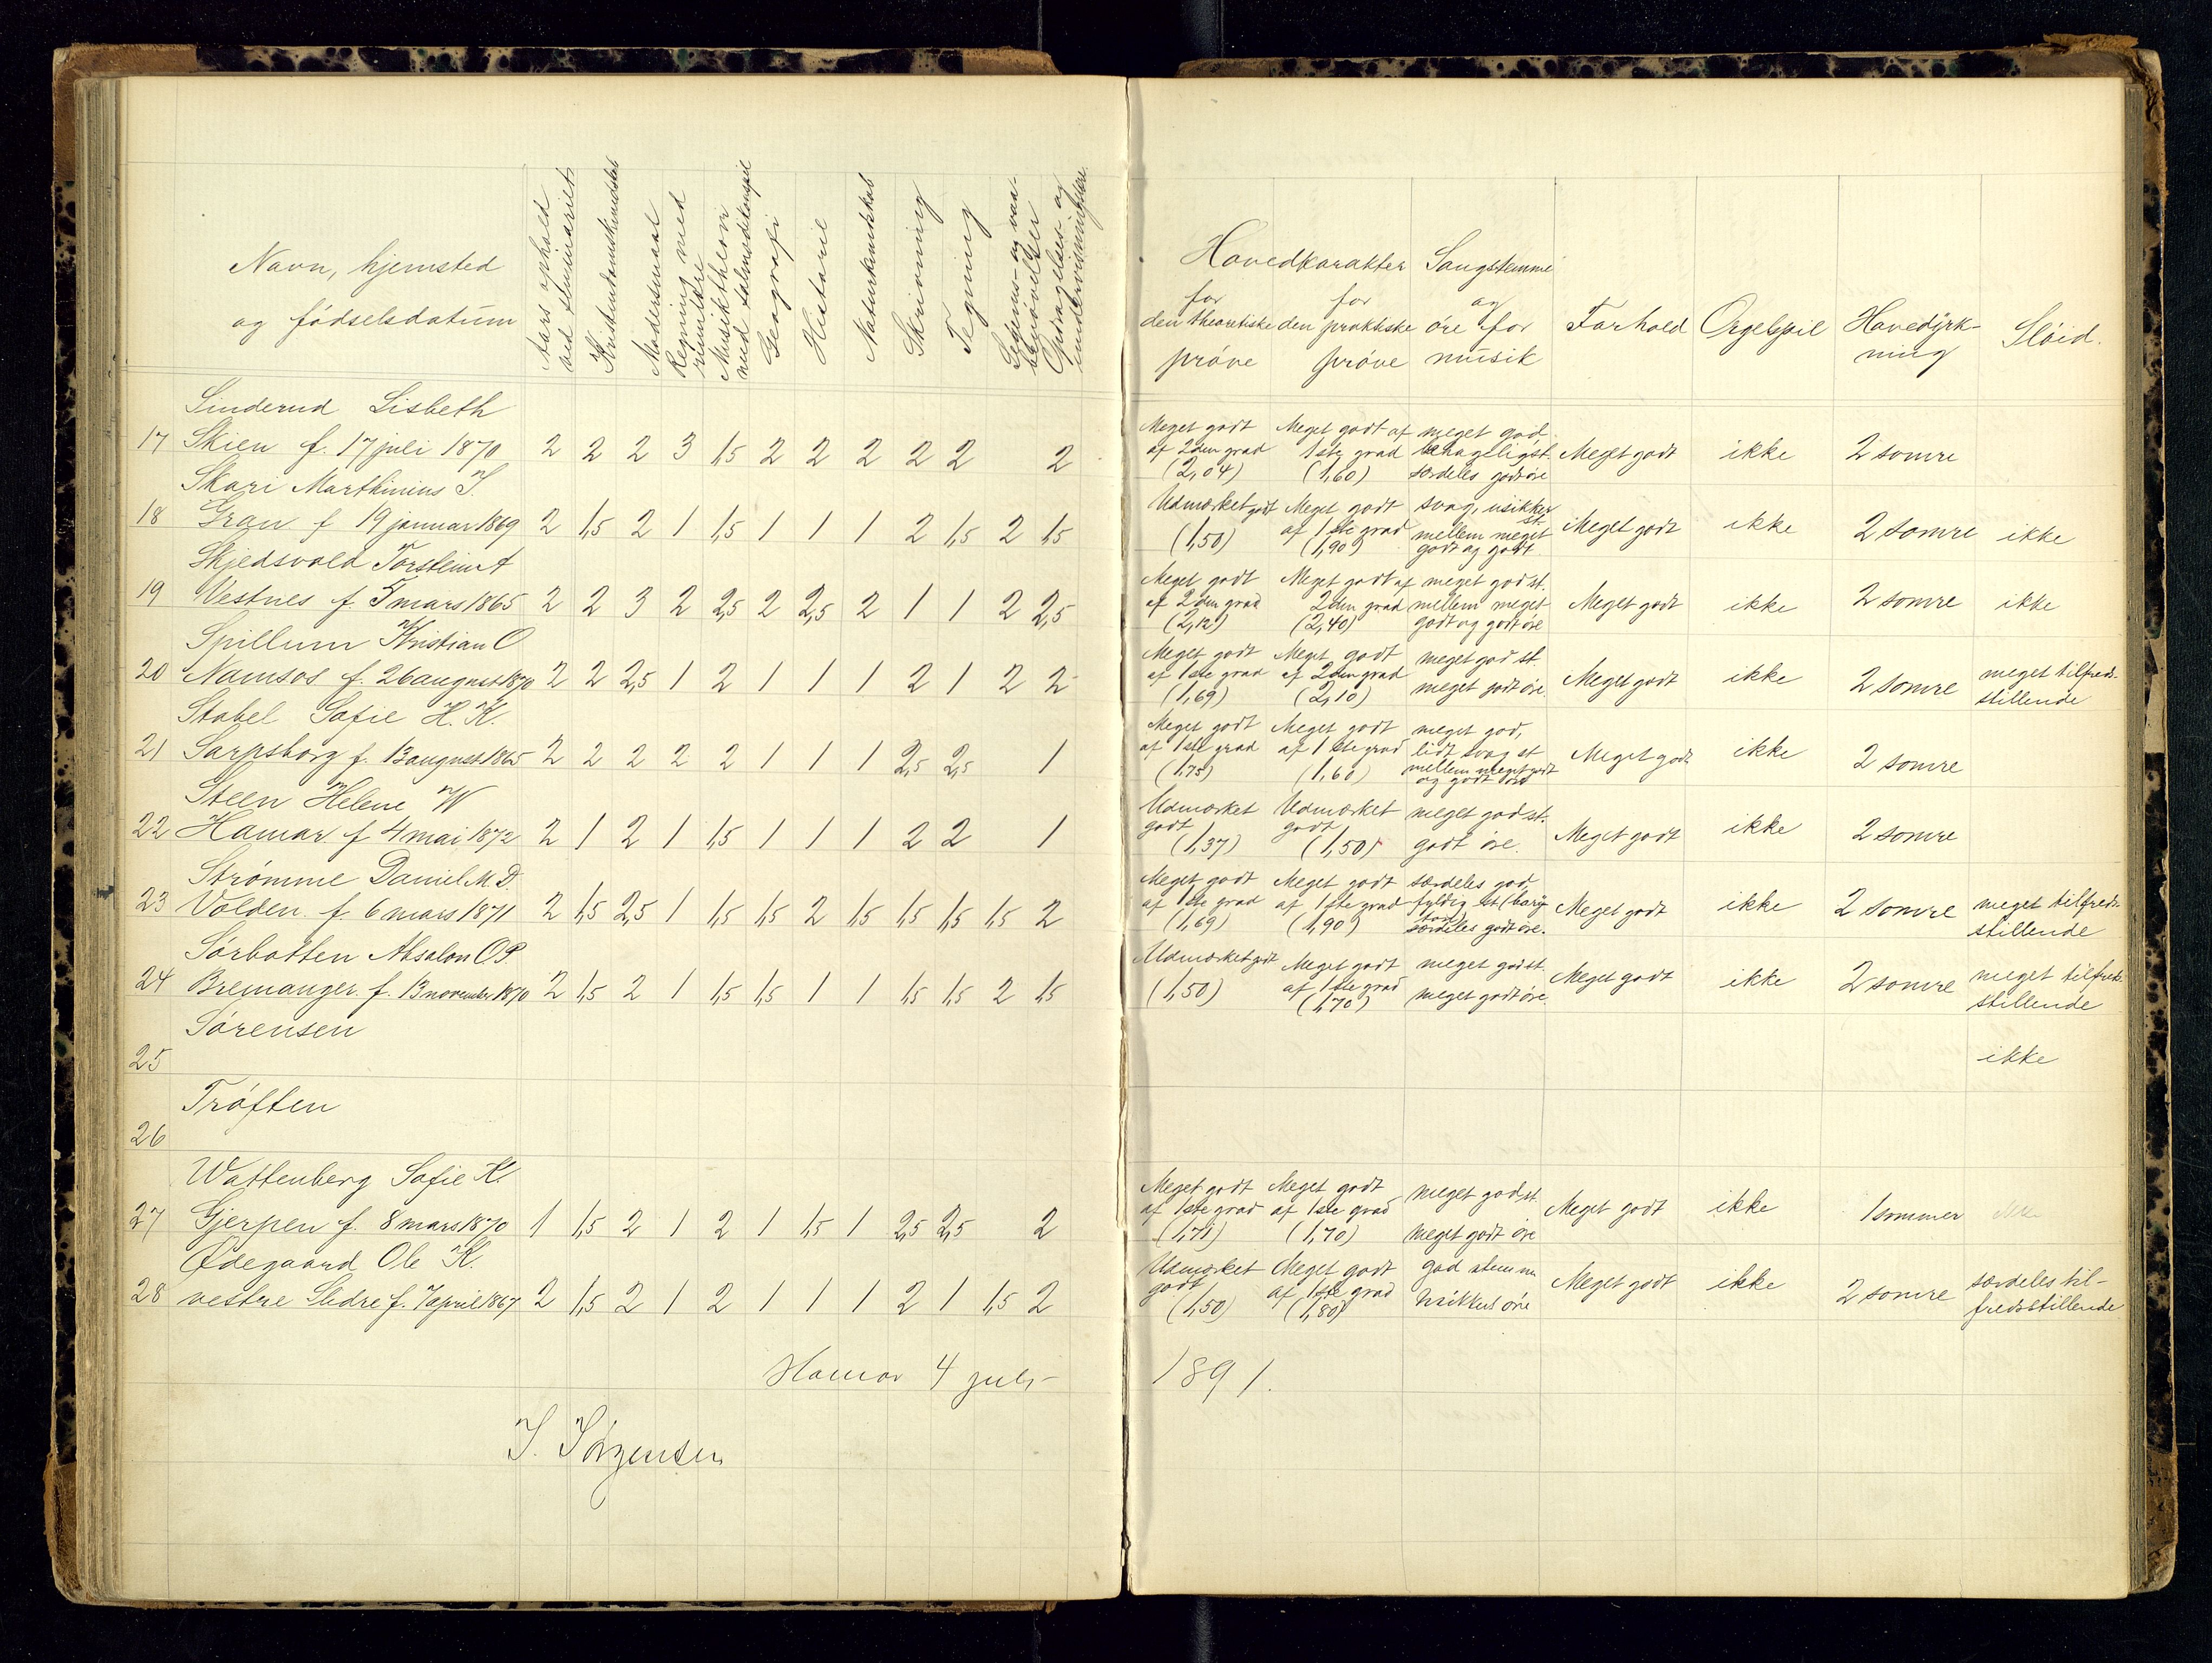 Navn, hjemsted
og födselsdatum
Aars ophold
ved seminariet
Kristendomskundskab
Modersmaal
Regning med
rumlære
Musiktheori
med salmodikonspil
Geografi
Historie
Naturkundskab
Skrivning
Tegning
Legems- og vaa-
benøvelser
Opdragelses- og
undervisningslære
Hovedkarakter
for
den theoretiske
pröve
for
den praktiske
pröve
Sangstemme
og
öre for
musik
Forhold
Orgelspil
Havedÿrk-
ning
Slöid.
Sinderud Lisbeth
17 Skien f. 17 juli 1870 2 2 2 3 1,5 2 2 2 2 2 2
Meget godt af 2den grad (2,04) Meget godt af 1ste grad (1,60) meget god behagelig st. særdeles godt öre Meget godt ikke 2 somre
Skari Marthinius J.
18 Gran f 19 januar 1869 2 1,5 2 1 1,5 1 1 1 2 1,5 2 1,5
Udmærket godt (1,50) Meget godt af 1ste grad (1,90) svag, usikker st. mellem meget godt og godt Meget godt ikke 2 somre ikke
Skjedsvold Torstein A
19 Vestnes f. 5 mars 1865 2 2 3 2 2,5 2 2,5 2 1 1 2 2,5
Meget godt af 2den grad (2,12) Meget godt af 2den grad (2,40) meget god st. mellem meget godt og godt öre Meget godt ikke 2 somre ikke
Spillum Kristian O
20 Namsos f. 26 august 1870 2 2 2,5 1 2 1 1 1 2 1 2 2
Meget godt af 1ste grad (1,69) Meget godt af 2den grad (2,10) meget god st. meget godt öre Meget godt ikke 2 somre meget tilfreds-stillende
Stabel Sofie H. K.
21 Sarpsborg f. 13 august 1865 2 2 2 2 2 1 1 1 2,5 2,5 1
Meget godt af 1ste grad (1,75) Meget godt af 1ste grad (1,60) meget god, lidt svag st mellem meget godt og godt öre Meget godt ikke 2 somre
Steen Helene W
22 Hamar f 4 mai 1872 2 1 2 1 1,5 1 1 1 2 2 1
Udmærket godt (1,37) Udmærket godt (1,50) meget god st. godt öre. Meget godt ikke 2 somre
Strömme Daniel M. D.
23 Volden f. 6 mars 1871 2 1,5 2,5 1 1,5 1,5 2 1,5 1,5 1,5 1,5 2
Meget godt af 1ste grad (1,69) Meget godt af 1ste grad (1,90) særdeles god, fyldig st (bariton) særdeles godt öre. Meget godt ikke 2 somre meget tilfreds-stillende
Sörbotten Absalon O. P.
24 Bremanger f. 13 november 1870 2 1,5 2 1 1,5 1,5 1 1 1,5 1,5 2 1,5
Udmærket godt (1,50) Meget godt af 1ste grad (1,70) meget god st. meget godt öre. Meget godt ikke 2 somre meget tilfreds-stillende
Sörensen
25 ikke
Tröften
26
Wattenberg Sofie K.
27 Gjerpen f. 8 mars 1870 1 1,5 2 1 2 1 1,5 1 2,5 2,5 2
Meget godt af 1ste grad (1,71) Meget godt af 1ste grad (1,70) meget god st. meget godt öre Meget godt ikke 1 sommer ikke
Ødegaard Ole K.
28 vestre Slidre f. 7 april 1867 2 1,5 2 1 2 1 1 1 2 1 1,5 2
Udmærket godt (1,50) Meget godt af 1ste grad (1,80) god stemme usikkert öre Meget godt ikke 2 somre særdeles til-fredsstillende
Hamar 4 juli 1891.
J. Sörensen